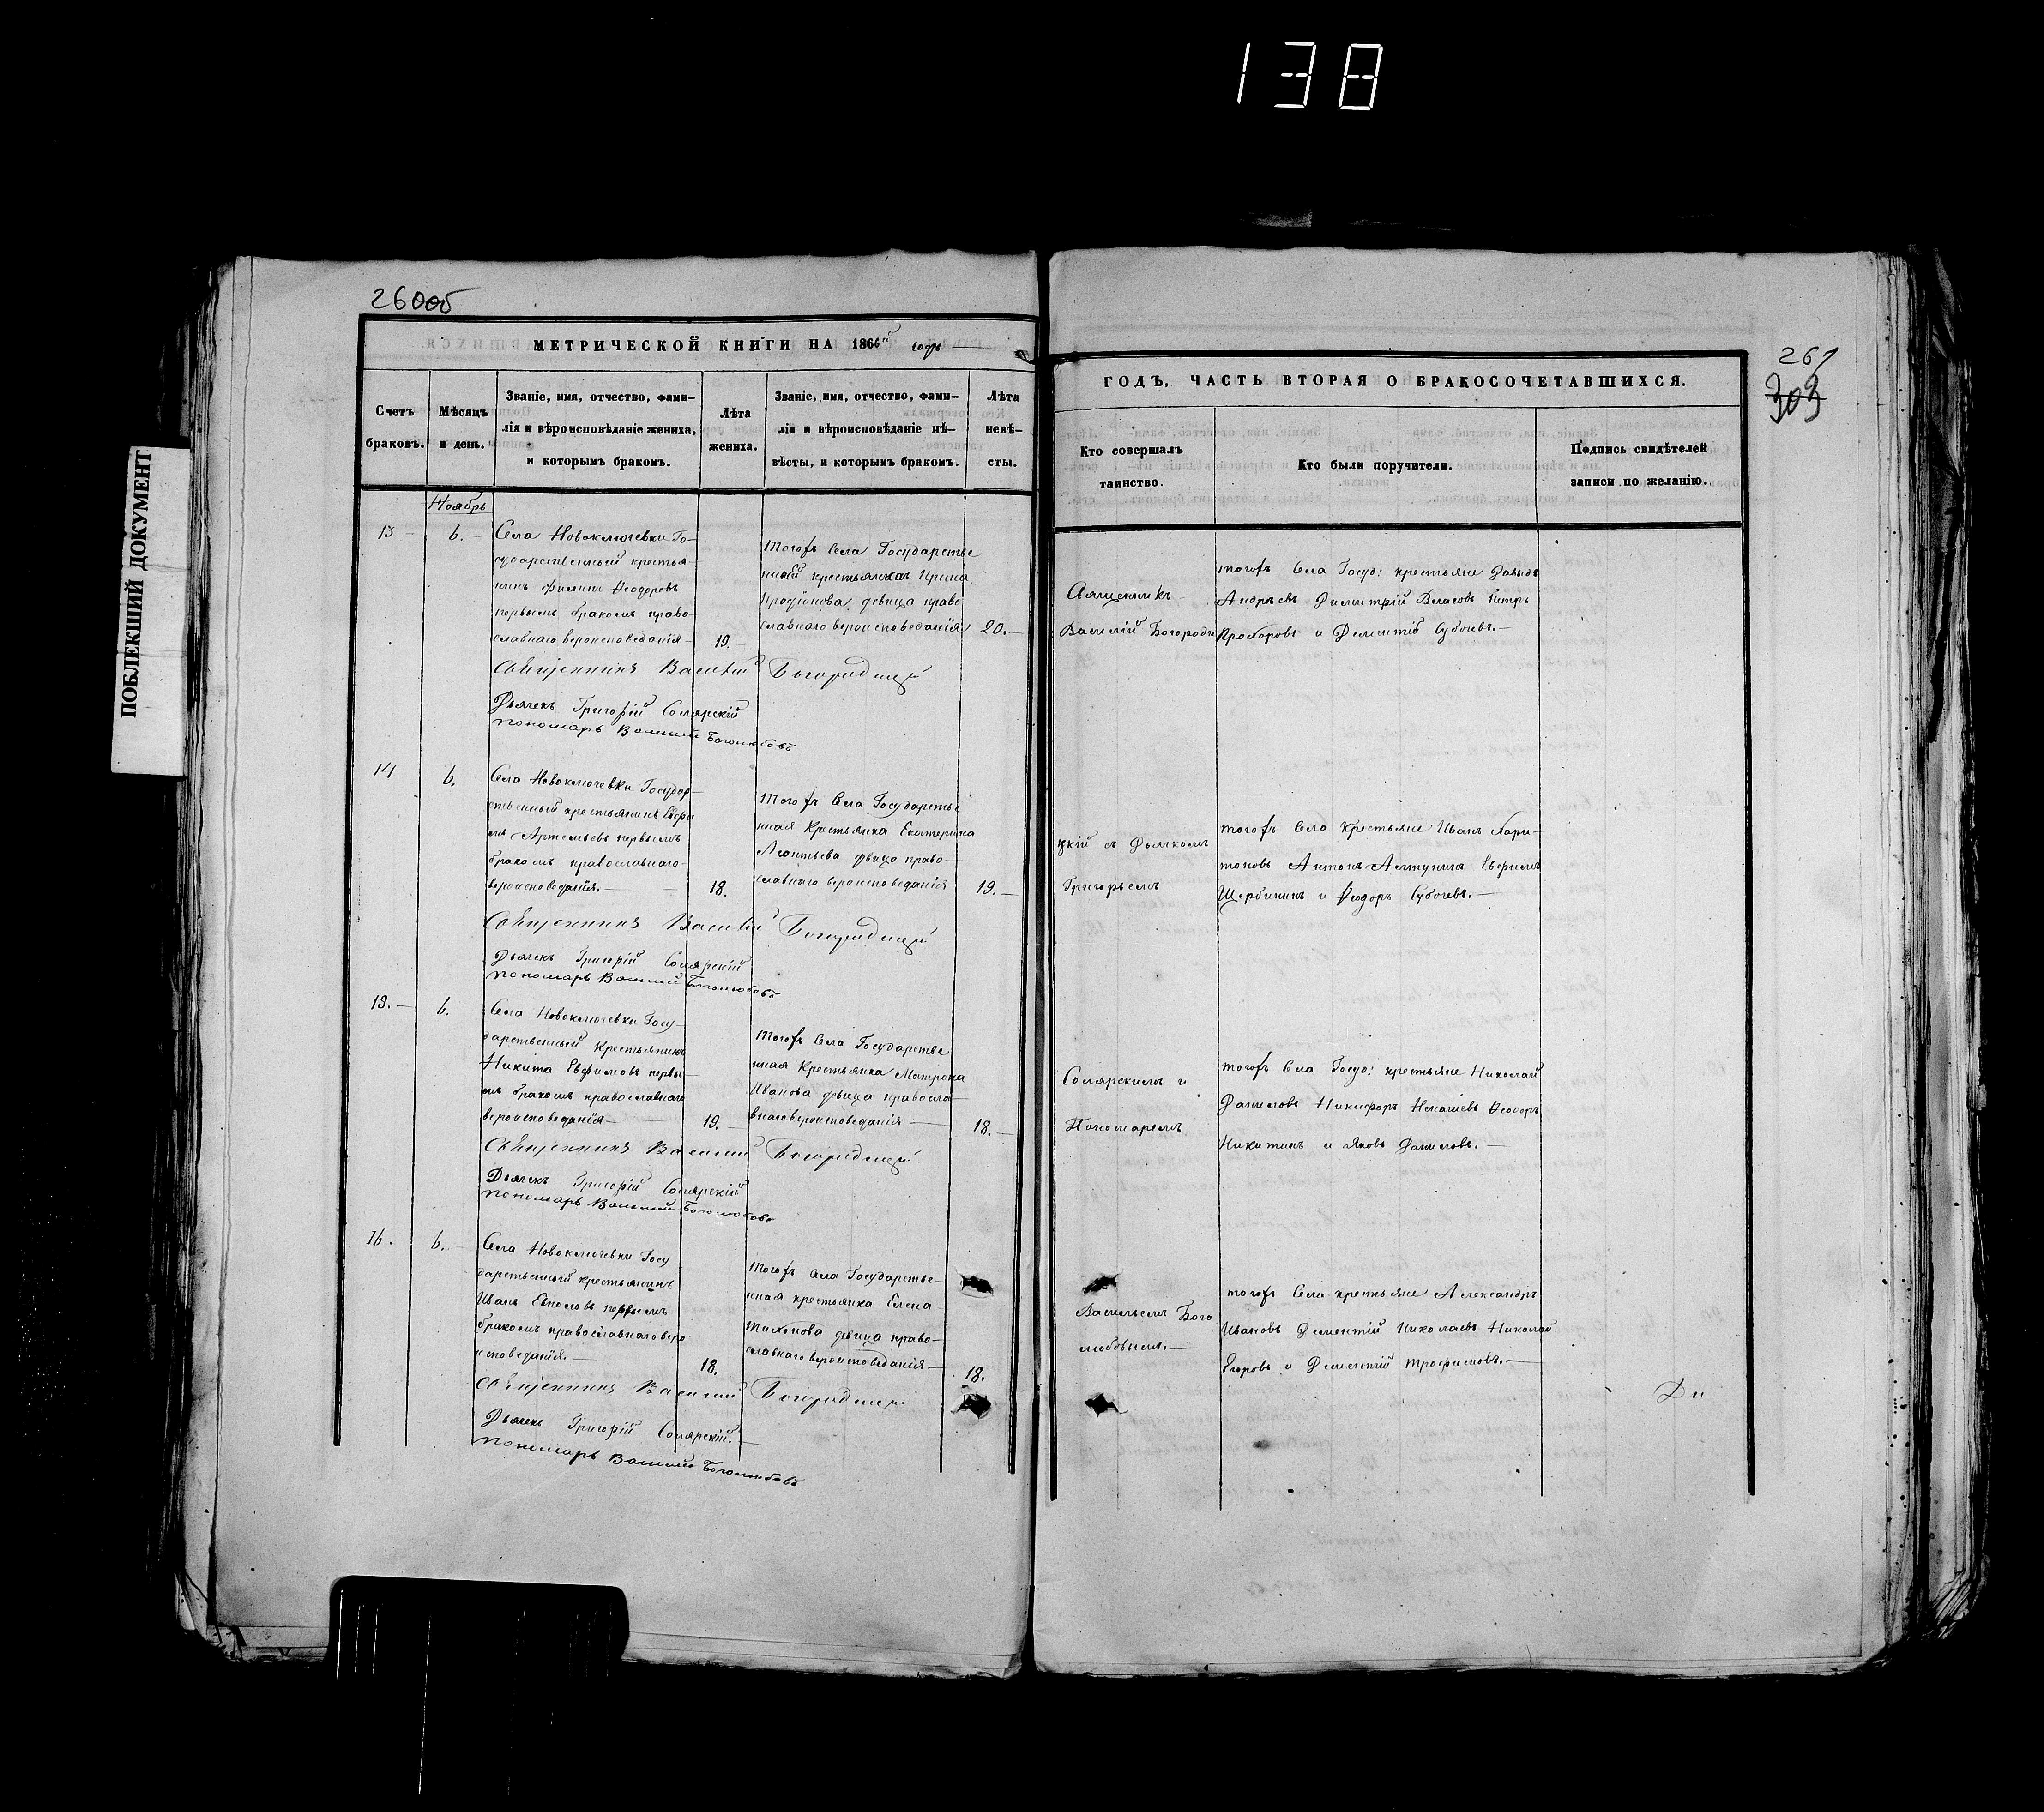 138
260об
МЕТРИЧЕСКОЙ КНИГИ НА 1866й годъ
Счетъ
браковъ.
Мѣсяцъ
и день.
Званіе, имя, отчество, фами-
лія и вѣроисповѣданіе жениха,
и которымъ бракомъ.
Лѣта
жениха.
Званіе, имя, отчество, фами-
лія и вѣроисповѣданіе не-
вѣсты, и которымъ бракомъ.
Лѣта
невѣ-
сты.
Ноябрь
13 6.
Села Новоключевки Го-
сударственный крестья-
нинъ Филипъ Ѳеодоровъ
первымъ бракомъ право-
славнаго вероисповеданія
19.
тогожъ Села Государстве
нной крестьянинъ Ирина
Иродіонова девица право
славнаго вероисповеданія
20.
Священникъ Василий Богородицкій
Дьячекъ Григорій Солярскій
пономарь Василий Боголюбовъ
14 6.
Села Новоключевки Государ-
ственный крестьянинъ Евфи
мъ Артемьевъ первымъ
бракомъ православнаго
вероисповеданія.
18.
тогожъ Села Государстве
нная Крестьянка Екатерина
Леонтьева девица право-
славнаго вероисповеданія
19.
Священникъ Василий Богородицкій
Дьячекъ Григорій Солярскій
пономарь Василий Боголюбовъ
15. 6.
Села Новоключевки Госу-
дарственный Крестьянинъ
Никита Евфимовъ первы-
мъ бракомъ православнаго
вероисповеданія
19.
тогожъ Села Государстве
нная Крестьянка Матрона
Иванова девица правосла-
внаго вероисповеданія
18.
Священникъ Василий Богородицкій
Дьячекъ Григорій Солярскій
пономарь Василий Боголюбовъ
16. 6.
Села Новоключевки Госу
дарственный крестьянинъ
Иванъ первымъ
бракомъ православнаго веро
исповеданія.
18.
тогожъ Села Государстве-
нная крестьянка Елена
Тихонова девица право-
славнаго вероисповеданія
18.
Священникъ Василий Богородицкій
Дьячекъ Григорій Солярскій.
пономарь Василий Боголюбовъ
261
303
ГОДЪ, ЧАСТЬ ВТОРАЯ О БРАКОСОЧЕТАВШИХСЯ.
Кто совершалъ
таинство.
Кто были поручители.
Подпись свидѣтелей
записи по желанію.
Священникъ
Василій Богороди
цкій съ Дьячкомъ
Григорьемъ
Солярскимъ и
Пономаремъ
Васильемъ Бого
любовымъ.
тогожъ Села Госуд: крестьяне Давыдъ
Андреевъ Димитрій Власовъ Петръ
Прохоровъ и Дементій Субочевъ.
тогожъ Села Крестьяне Иванъ Хари-
тоновъ Антонъ Алтунинъ Евфимъ
Щербининъ и Ѳеодоръ Субочевъ.
тогожъ Села Госуд: крестьяне Николай
Даниловъ Никифоръ Ненашевъ Ѳеодоръ
Никитинъ и Яковъ Даниловъ.
тогожъ Села крестьяне Александръ
Ивановъ Дементій Николаевъ Николай
Егоровъ и Дементій Трофимовъ.
Ди
ПОБЛЕКШИЙ ДОКУМЕНТ